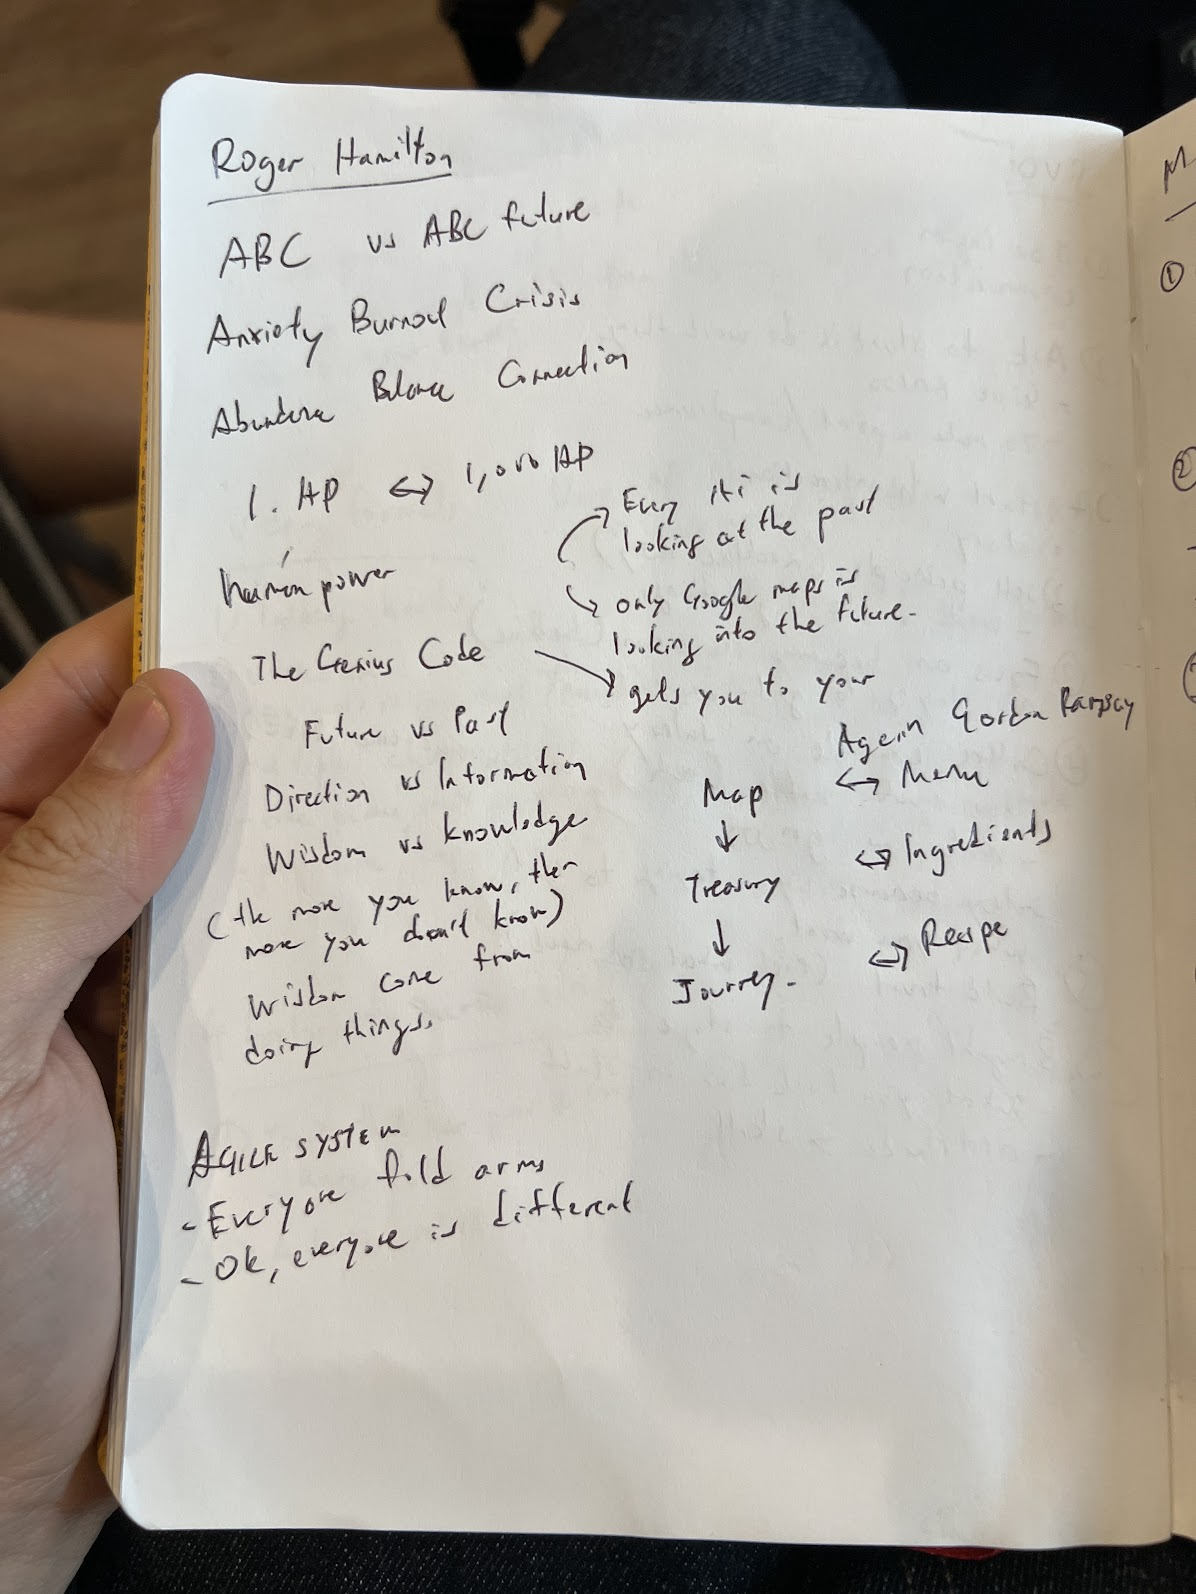 Roger Hamilton
ABC vs ABC future
Anxiety Burnout Crisis
Abundance Balance Connection
1. HP ↔ 1,000 HP
human power
Every AI is
looking at the past
only Google maps is
looking into the future.
The Genius Code → gets you to your
Future vs Past
Direction vs Information
Wisdom vs knowledge
(the more you know, the
more you don't know)
Wisdom come from
doing things.
Again Gordon Ramsay
Map ↔ Menu
↓
Treasury ↔ Ingredients
↓
Journey. ↔ Recipe
AGILE SYSTEM
- Everyone fold arms
- Ok, everyone is different
M
①
②